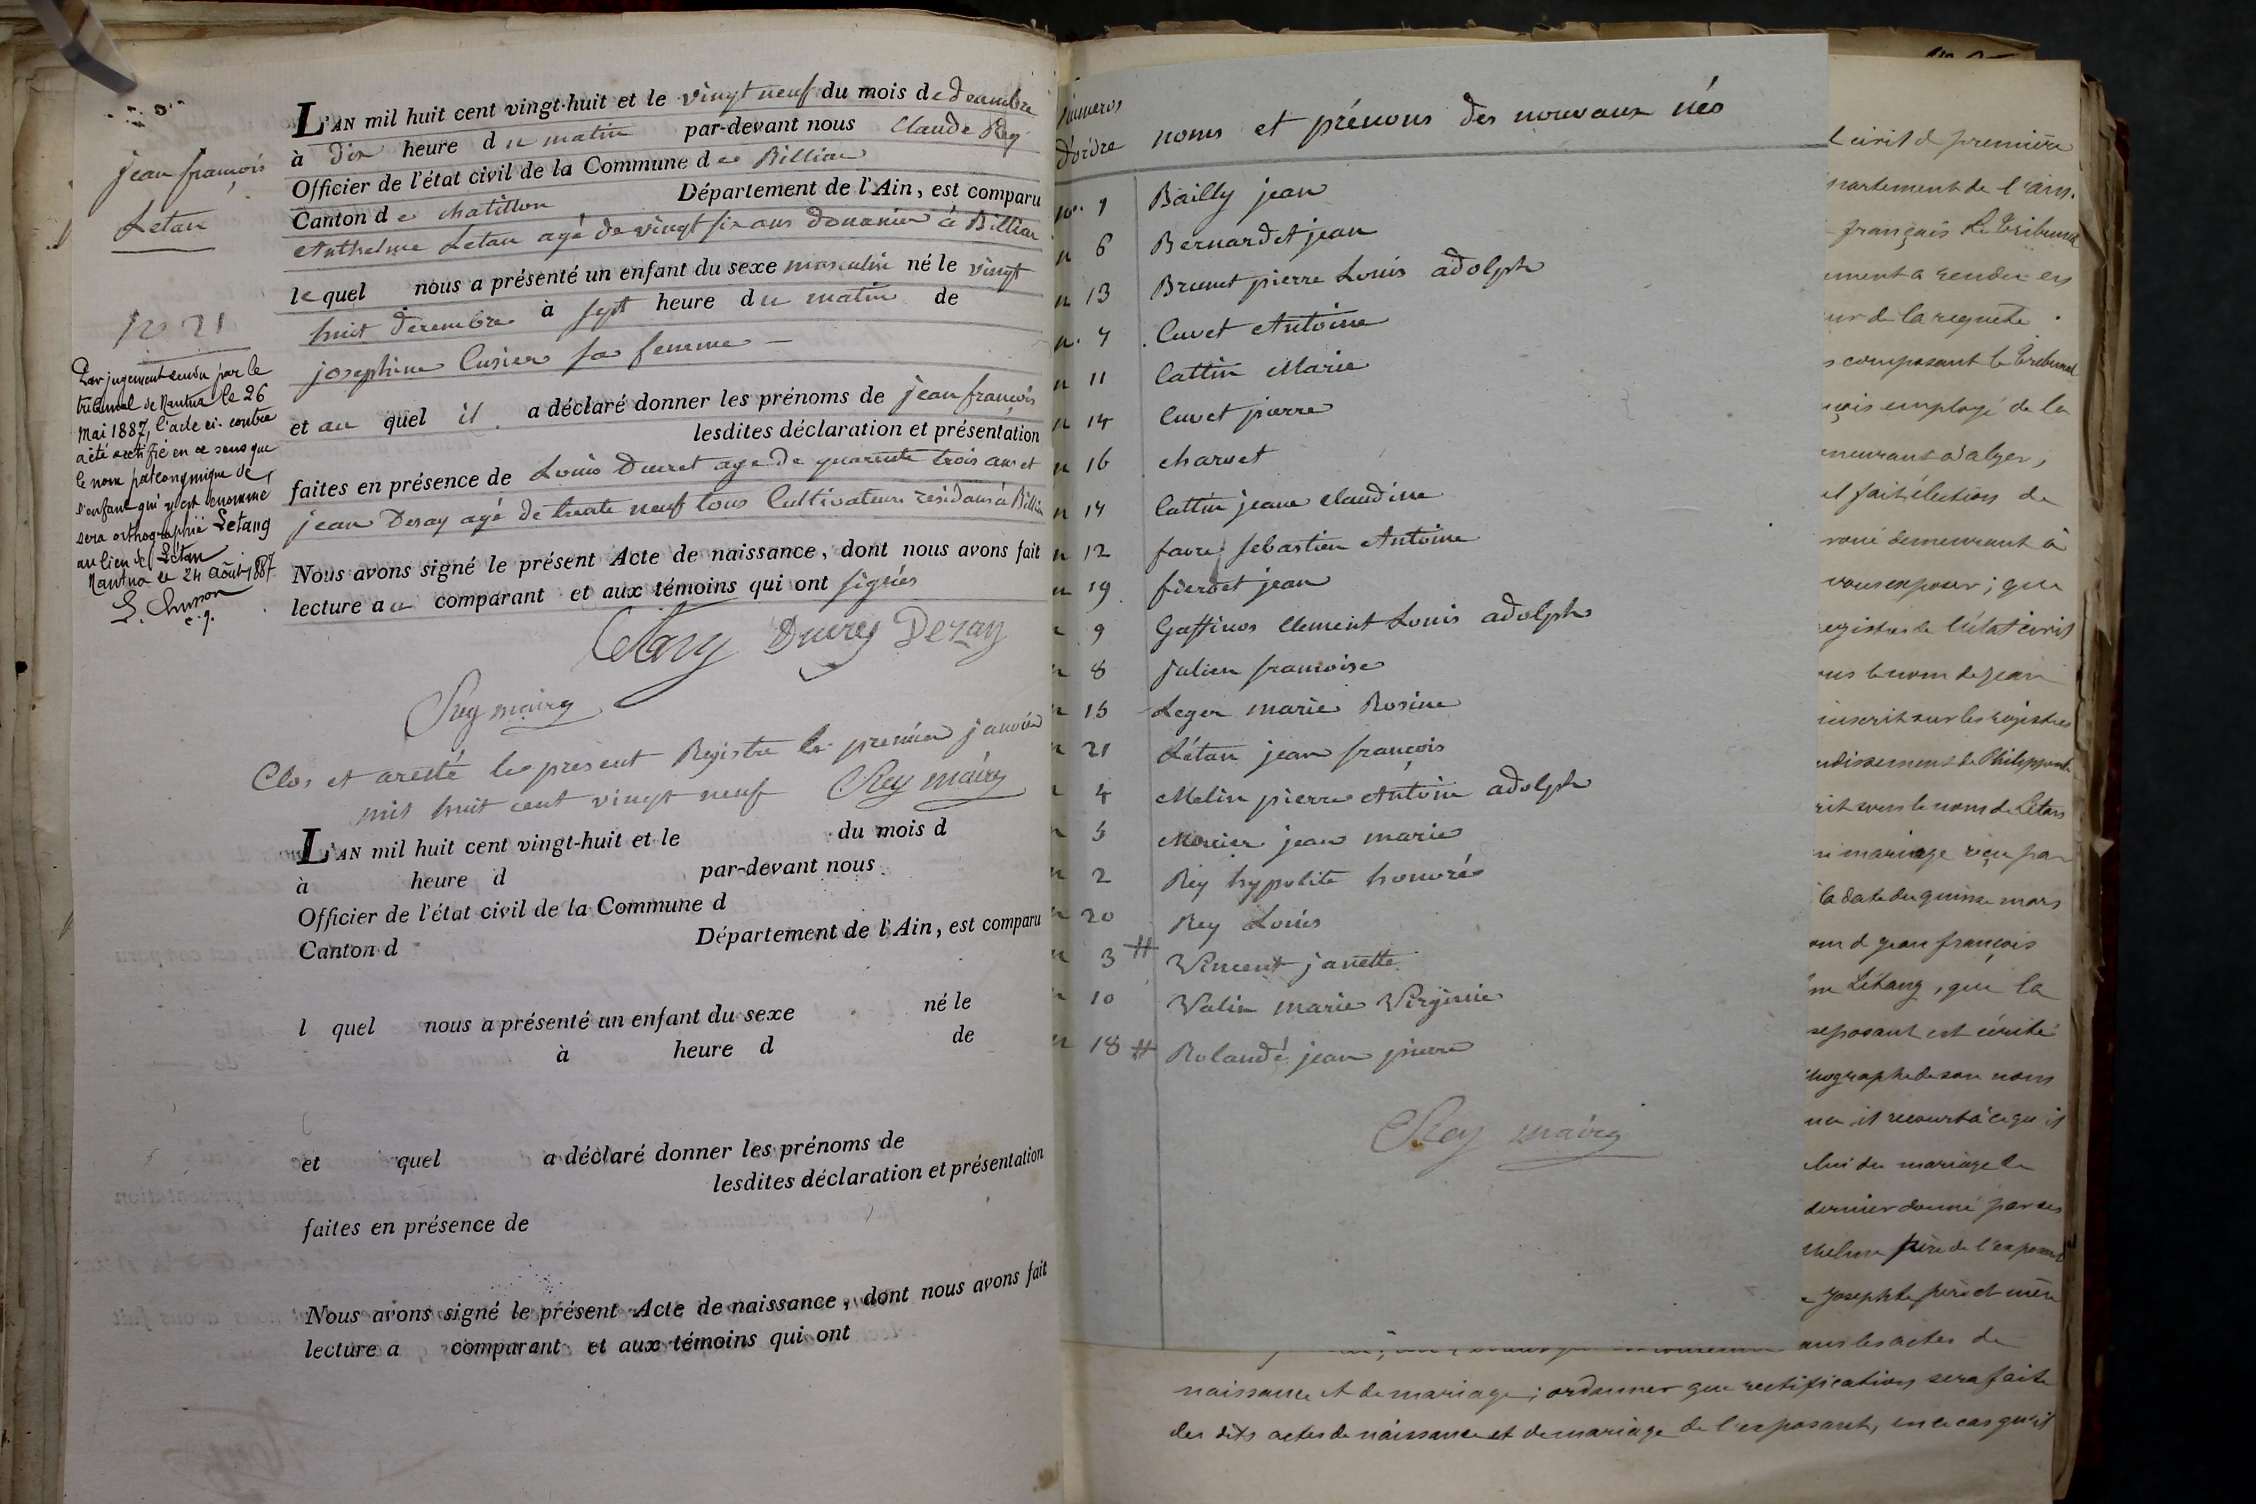 jean françois
Letan
No 21
Par jugement rendu par le
tribunal de Nantua le 26
mai 1887, l'acte ci-contre
a été rectifié en ce sens que
le nom patronymique de
l'enfant qui y est dénommé,
sera orthographié Letang
au lieu de Létan
Nantua le 24 Août 1887
L'AN mil huit cent vingt-huit et le vingt neuf du mois de decembre
à dix heure du matin par-devant nous Claude Rey
Officier de l'état civil de la Commune de Billiat
Canton de chatillon Département de l'Ain, est comparu
Anthelme Letan agé de vingt six ans douanier à Billiat
lequel nous a présenté un enfant du sexe masculin né le vingt
huit decembre à sept heure du matin de
josephine Cusier sa femme
et au quel il a déclaré donner les prénoms de jean françois
lesdites déclaration et présentation
faites en présence de Louis Ducret age de quarente trois ans et
jean Deray agé de trente neuf tous Cultivateurs residans à Billiat
Nous avons signé le présent Acte de naissance, dont nous avons fait
lecture au comparant et aux témoins qui ont signés
Rey maire
Clos et aresté le present Registre le premier janvier
mil huit cent vingt neuf Rey maire
L'AN mil huit cent vingt-huit et le du mois d
à heure d par-devant nous
Officier de l'état civil de la Commune d
Canton d Département de l'Ain, est comparu
l quel nous a présenté un enfant du sexe né le
à heure d de
et quel a déclaré donner les prénoms de
lesdites déclaration et présentation
faites en présence de
Nous avons signé le présent Acte de naissance, dont nous avons fait
lecture a comparant et aux témoins qui ont
Numeros
d'ordre noms et prénoms des nouvaux nés
no. 1 Bailly jean
n 6 Bernardet jean
n 13 Brunet pierre Louis adolphe
n. 7 Cuvet Antoine
n 11 Cattin Marie
n 14 Cuvet pierre
n 16 charvet
n 17 Cattin jeane claudine
n 12 favre sebastien Antoine
n 19 fierdet jean
n 9 Gaffinos Clement Louis adolphe
n 8 julien francoise
n 15 Leger marie Rosine
n 21 Létan jean françois
n 4 Melin pierre Antoine adolphe
n 5 Mercier jean marie
n 2 Rey hypolite honoré
n 20 Rey Louis
n 3 # Vincent janette
n 10 Valin marie Virginie
n 18 # Rolandé jean pierre
Rey maire
l civil de première
partement de l'ain.
français Le Tribunal
ement a rendu en
ur de la requête
s composant le Tribunal
çois employé de la
meurant à alger,
et fait élection de
voué demeurant à
vous exposer; que
egistres de l'état civil
ous le nom de jean
inscrit sur les registres
ndissement de Philippeville
rit sous le nom de Létan
mariage reçu par
la date du quinze mars
om de jean françois
Létang, que la
exposant est écrite
thographe de son nom
il recourt à ce qu'il
lui du mariage le
dernier donné par ses
thelme père de l'exposant
Josephte père et mère
ans les actes de
naissance et de mariage; ordonner que rectification sera faite
des dits actes de naissance et de mariage de l'exposant, en ce cas qu'il